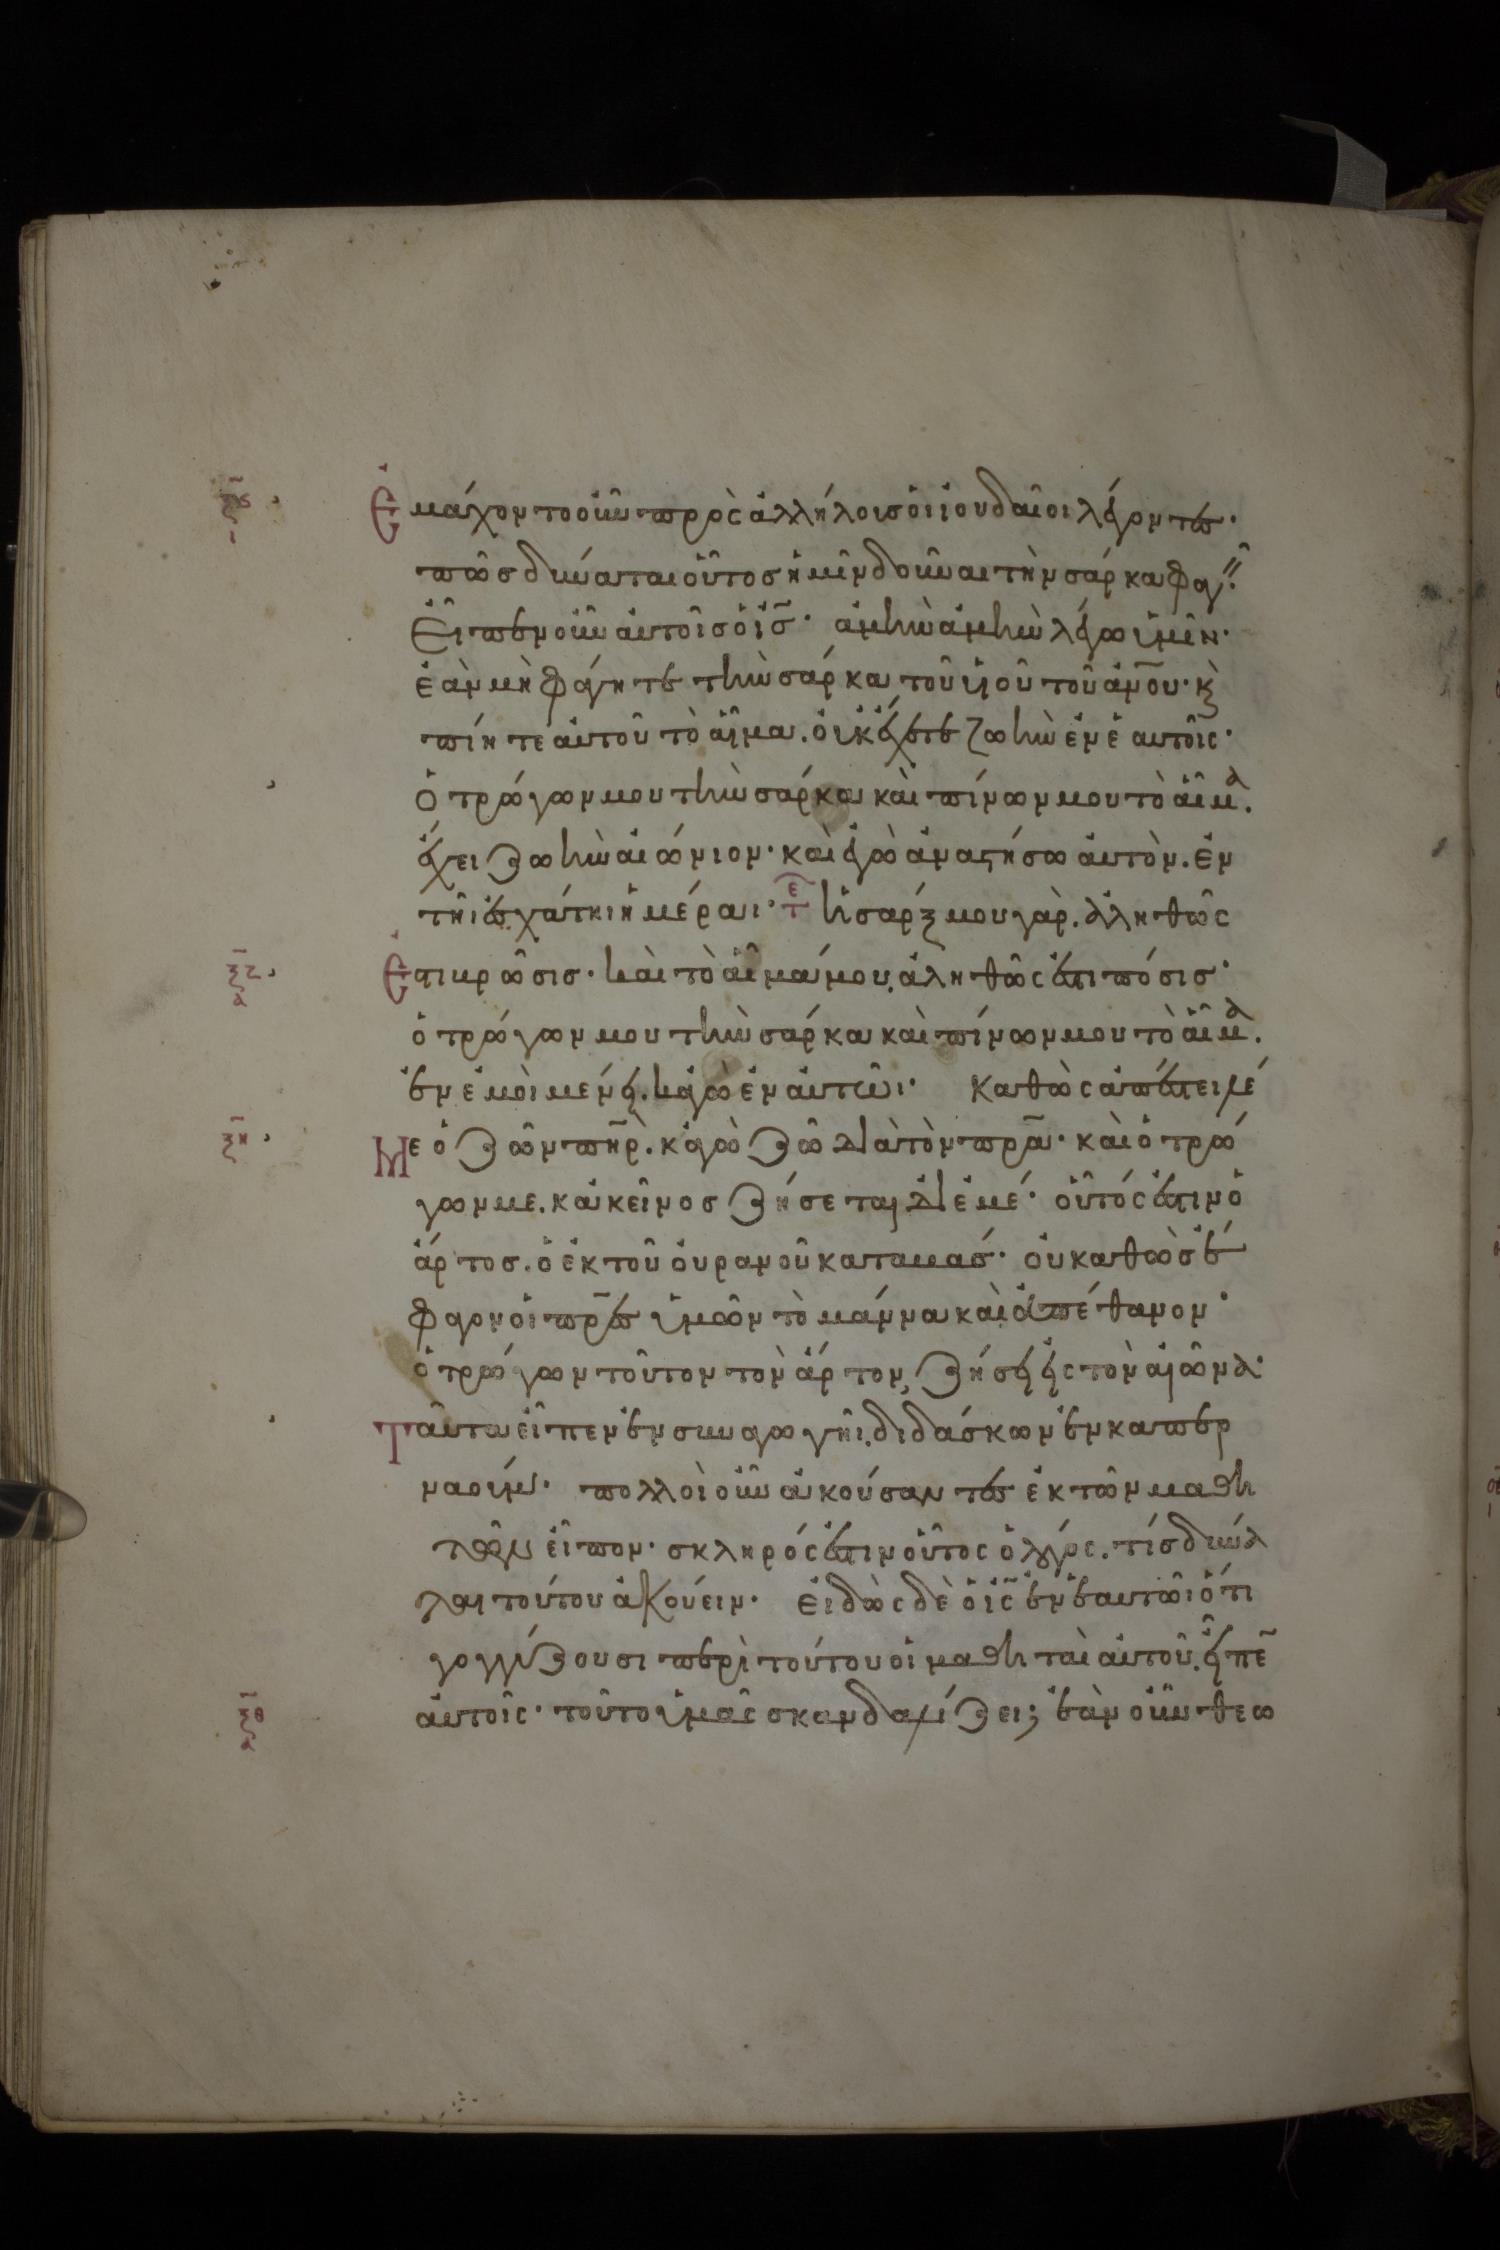 ξς
ι
Ἐμάχοντο οὖν πρὸς ἀλλήλοις οἱ ἰουδαῖοι λέγοντες·
πῶς δύναται οὗτος ἡμῖν δοῦναι τὴν σάρκα φαγ
Εἶπεν οὖν αὐτοῖς ὁ ις· ἀμὴν ἀμὴν λέγω ὑμῖν·
ἐὰν μὴ φάγητε τὴν σάρκα τοῦ υἱοῦ τοῦ ανου· κὲ
πίητε αὐτοῦ τὸ αἷμα. οὐκ ἔχετε ζωὴν ἐν ἑαυτοῖς·
ὁ τρώγων μου τὴν σάρκα καὶ πίνων μου τὸ αἷμα.
ἔχει ζωὴν αἰώνιον· καὶ ἐγὼ ἀναστήσω αὐτὸν. ἐν
τῆι ἐσχάτηι ἡμέραι· τε ἡ σάρξ μου γὰρ. ἀληθῶς
ξζ
α
ἐστι βρῶσις· καὶ τὸ αἷμά μου, ἀληθῶς ἐστι πόσις·
ὁ τρώγων μου τὴν σάρκα καὶ πίνων μου τὸ αἷμα.
ἐν ἐμοὶ μένει. κἀγὼ ἐν αὐτῶι· καθὼς ἀπέστειλέ
ξη
Με ὁ ζῶν πηρ. κἀγὼ ζῶ διὰ τὸν πρα· καὶ ὁ τρώ
γων με. κἀκεῖνος ζήσεται δι ἐμέ· οὗτός ἐστιν ὁ
ἄρτος. ὁ ἐκ τοῦ οὐρανοῦ καταβάς· οὐ καθὼς ἔ
φαγον οἱ πρες ὑμῶν τὸ μάννα καὶ ἀπέθανον·
ὁ τρώγων τοῦτον τὸν ἄρτον, ζήσει εἰς τὸν αἰῶνα·
Ταῦτα εἶπεν ἐν συναγωγῆι. διδάσκων ἐν καπερ
ναούμ· πολλοὶ οὖν ἀκούσαντες ἐκ τῶν μαθη
τῶν εἶπον· σκληρός ἐστιν οὗτος ὁ λόγος. τίς δύνα
ται τούτου ἀκούειν· εἰδὼς δὲ ὁ ις ἐν ἑαυτῶι ὅτι
γογγύζουσι περὶ τούτου οἱ μαθηταὶ αὐτοῦ. εἶπε
ξθ
α
αὐτοῖς· τοῦτο ὑμᾶς σκανδαλίζει; ἐὰν οὖν θεω